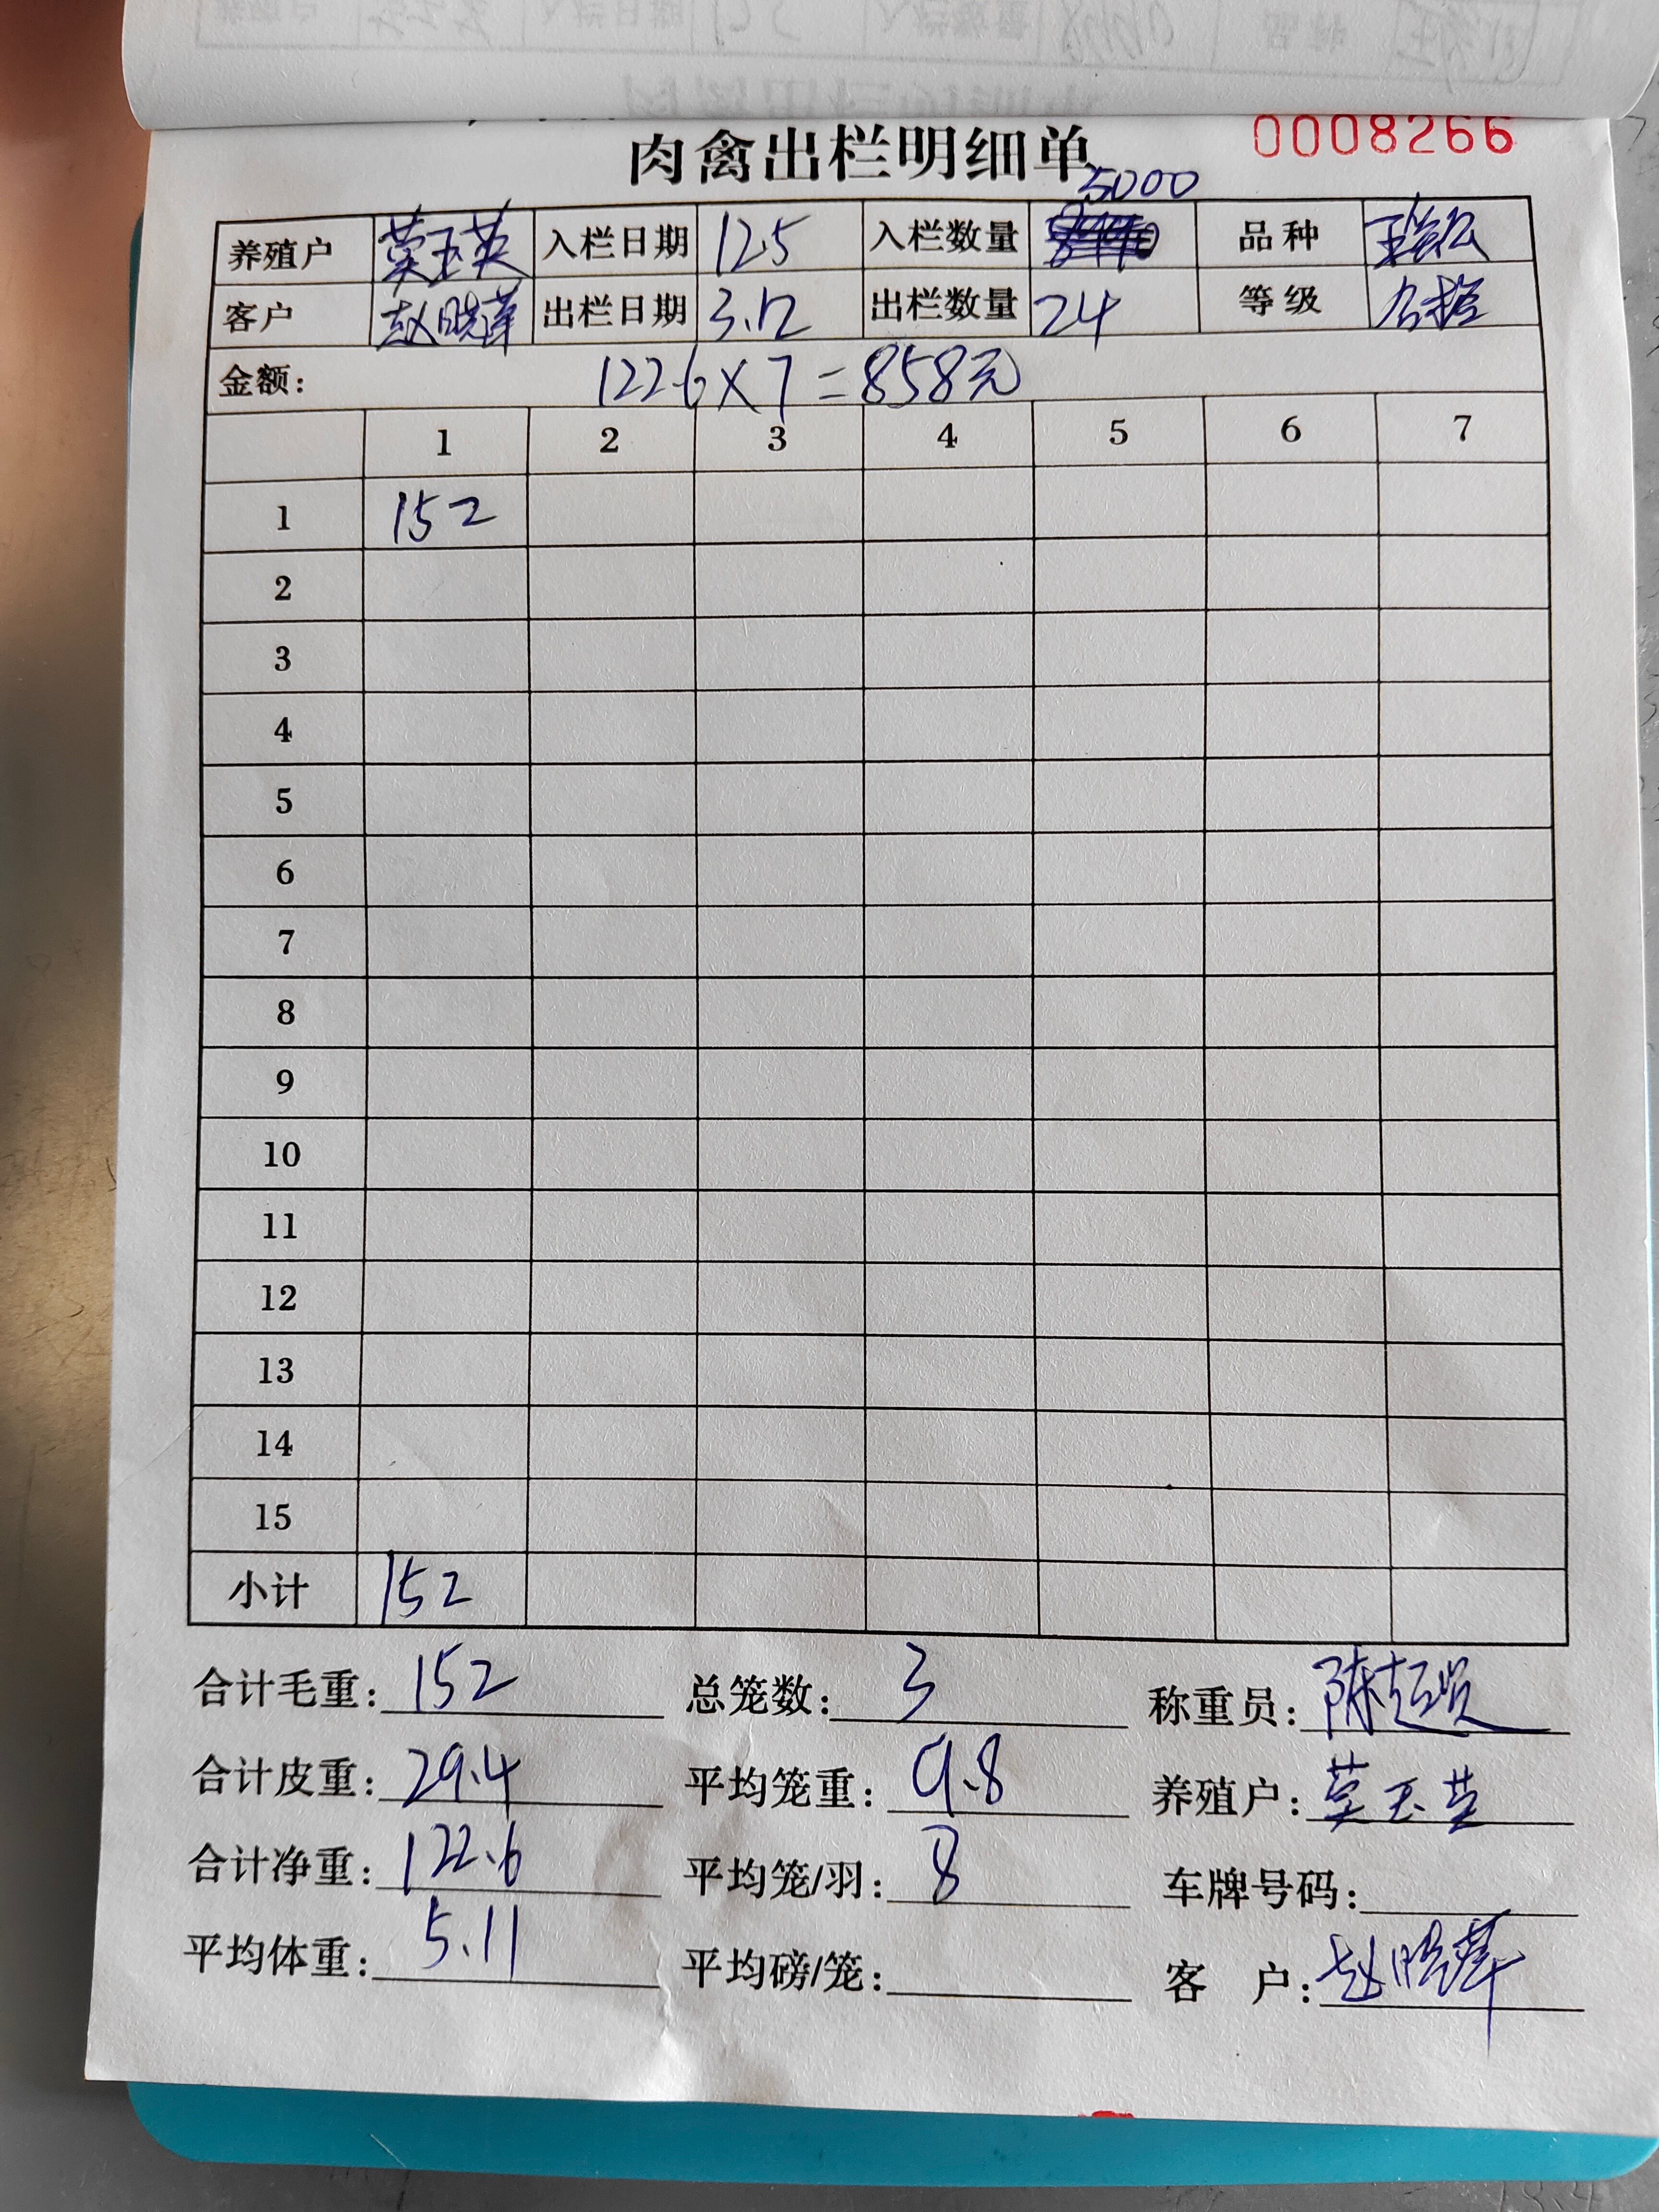 肉禽出栏明细单 0008266
5000
养殖户 莫玉英 入栏日期 12.5 入栏数量 品种
客户 赵晓萍 出栏日期 3.12 出栏数量 24 等级 合格
金额: 122.6×7=858元
1 2 3 4 5 6 7
1 152
2
3
4
5
6
7
8
9
10
11
12
13
14
15
小计 152
合计毛重: 152 总笼数: 3 称重员: 陈超贤
合计皮重: 29.4 平均笼重: 9.8 养殖户: 莫玉英
合计净重: 122.6 平均笼/羽: 8 车牌号码:
平均体重: 5.11 平均磅/笼: 客 户: 赵晓萍